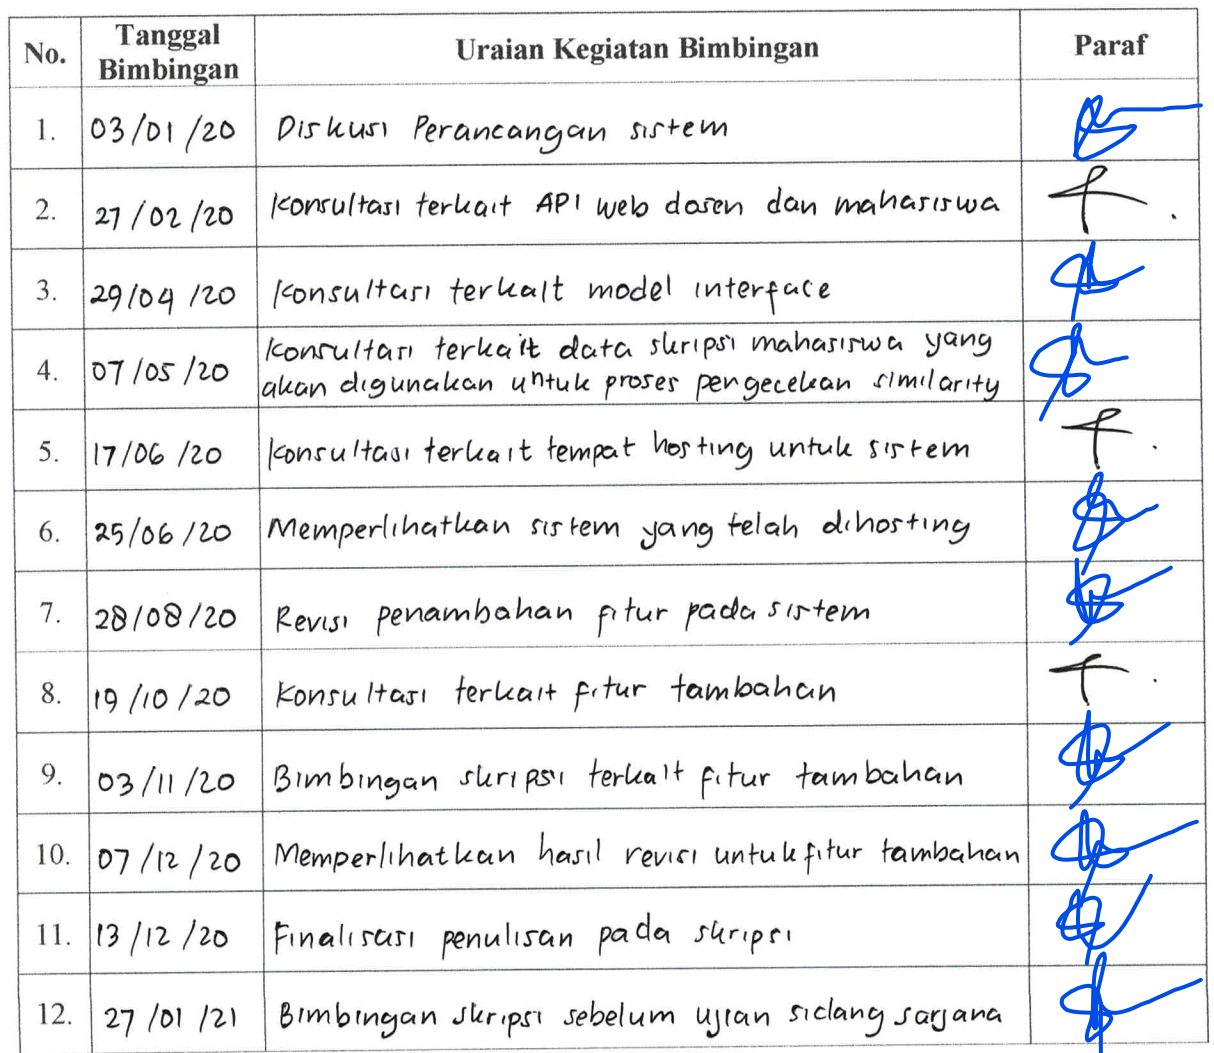 No. Tanggal Bimbingan Uraian Kegiatan Bimbingan Paraf
1. 03/01/20 Diskusi Perancangan sistem
2. 27/02/20 Konsultasi terkait API web dosen dan mahasiswa
3. 29/04/20 Konsultasi terkait model interface
4. 07/05/20 Konsultasi terkait data skripsi mahasiswa yang
akan digunakan untuk proses pengecekan similarity
5. 17/06/20 Konsultasi terkait tempat hosting untuk sistem
6. 25/06/20 Memperlihatkan sistem yang telah dihosting
7. 28/08/20 Revisi penambahan fitur pada sistem
8. 19/10/20 Konsultasi terkait fitur tambahan
9. 03/11/20 Bimbingan skripsi terkait fitur tambahan
10. 07/12/20 Memperlihatkan hasil revisi untuk fitur tambahan
11. 13/12/20 Finalisasi penulisan pada skripsi
12. 27/01/21 Bimbingan skripsi sebelum ujian sidang sarjana